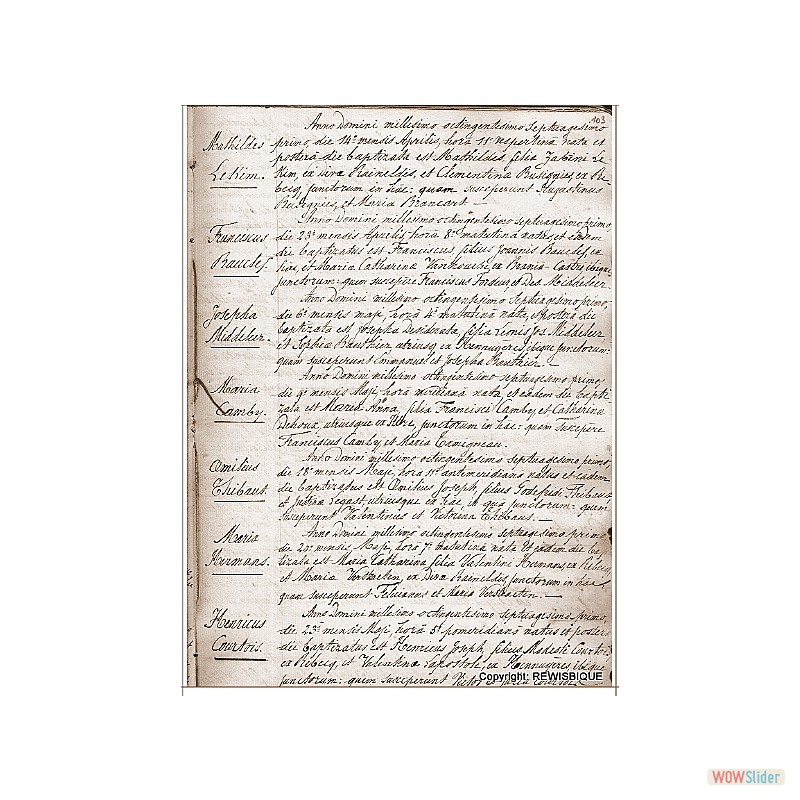 103
Anno Domini millesimo octingentesimo septuagesimo
Mathildes primo, die 14ª mensis Aprilis, horâ 11ª vespertina nata et
posterâ die baptizata est Mathildis, filia
Le Kim. Kim, ex Divâ Raineldis, et Clementina Rusignies, ex Re-
becq, junctorum in hac: quam susceperunt Augustinus
Rusignies, et Maria Brancart. —
Anno Domini millesimo octingentesimo septuagesimo primo,
Franciscus die 23ª mensis Aprilis, horâ 8ª matutinâ natus, et eâdem
die baptizatus est Franciscus, filius Joannis Baucles, ex
Baucles. et Maria Catharina ex Brania - ibique
junctorum: quem suscepere Franciscus et Middeleer.
Anno Domini millesimo octingentesimo septuagesimo primo,
Josepha die 6ª mensis maji, horâ 4ª matutina nata, et posterâ die
baptizata est Josepha Desiderata, filia Leonis Jos. Middeleer
Middeleer. et Sophia Hauthier utriusq. ex Hennuyeres, ibique junctorum:
quam susceperunt Emmanuel et Josepha Hauthier. —
Anno Domini millesimo octingentesimo septuagesimo primo,
Maria die 9ª mensis Maji, horâ meridianâ nata et eâdem die bapti-
zata est Maria Anna, filia Francisci Camby, et Catharina
Camby. Dehoux, utriusque ex junctorum in hac: quam suscepere
Franciscus Camby, et Maria
Anno Domini millesimo octingentesimo septuagesimo primo,
Omilius die 18ª mensis Maji, horâ 11ª antimeridianâ natus et eâdem
die baptizatus est Omilius Joseph, filius Godefridi Thibaut,
Thibaut. et Justina Legast, utriusque ex hac, et quâ junctorum: quem
susceperunt Valentinus et Victorina Thibaus. —
Anno Domini millesimo octingentesimo septuagesimo primo
Maria die 22ª mensis Maji, horâ 7ª matutinâ nata et eâdem die bap-
tizata est Maria Catharina, filia Valentini Hermans, ex Rebecq
Hermans. et Maria Verstraeten, ex Diva Raineldis, junctorum in hac
quam susceperunt Felicianus et Maria Verstraeten. —
Anno Domini millesimo octingentesimo septuagesimo primo,
Henricus die 23ª mensis Maji, horâ 5ª pomeridianâ natus et posterâ
die baptizatus est Henricus Joseph, filius Modesti Courtois
Courtois. ex Rebecq, et Valentina Lapostole, ex Hennuyeres, ibique
junctorum: quem susceperunt Victor et Maria Courtois. —
Copyright: REWISBIQUE
WOWSlider